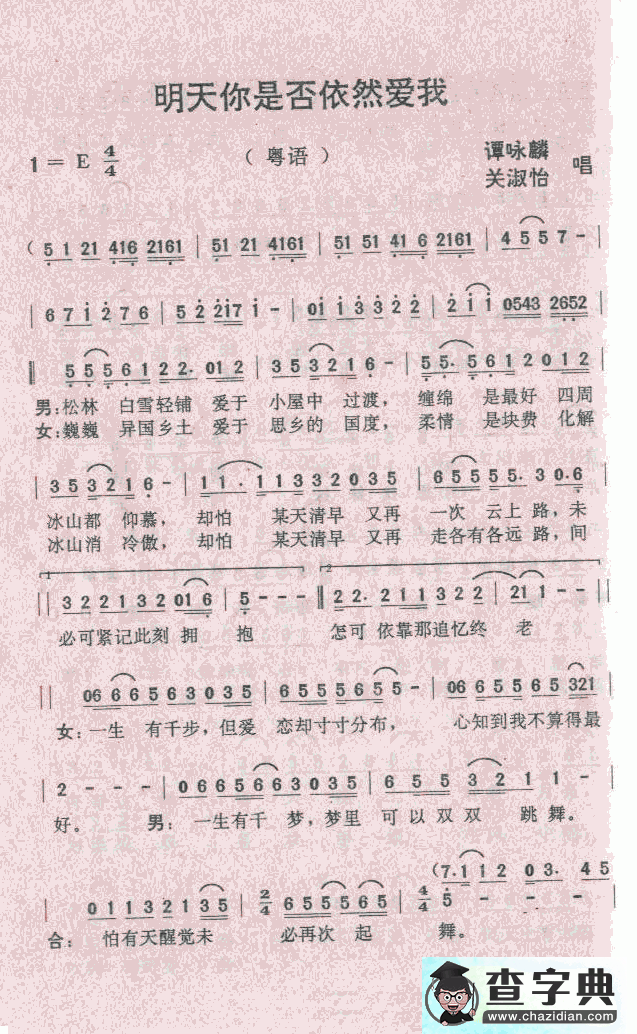 明天你是否依然爱我
1 = E 4/4 （粤语） 谭咏麟 关淑怡 唱
( 5 1 21 416 2161 | 51 21 4161 | 51 51 41 6 2161 | 4 5 5 7 - |
| 6 7 i 2 7 6 | 5 2 2i7 i - | 0i i 3 3 2 2 | 2 i i 0543 2652 |
‖ 5 5 5 6 1 2 2· 01 2 | 3 5 3 2 1 6 - | 5 5· 5 6 1 2 0 1 2 |
男：松林 白雪轻铺 爱于 小屋中 过渡， 缠绵 是最好 四周
女：巍巍 异国乡土 爱于 思乡的 国度， 柔情 是块费 化解
| 3 5 3 2 1 6 - | 1 1 · 1 1 3 3 2 0 3 5 | 6 5 5 5 5· 3 0·6 |
冰山都 仰慕， 却怕 某天清早 又再 一次 云上路，未
冰山消 冷傲， 却怕 某天清早 又再 走各有各远路，间
1 2
‖ 3 2 2 1 3 2 01 6 | 5 - - - ‖ 2 2· 2 1 1 3 2 2 | 21 1 - - |
必可紧记此刻 拥 抱 怎可 依靠那追忆终 老
‖ 06 6 6 5 6 3 0 3 5 | 6 5 5 5 6 5 5 - | 06 6 5 5 6 5 321 |
女：一生 有千步，但爱 恋却寸寸分布， 心知到我不算得最
| 2 - - - | 0 6 6 5 6 6 3 03 5 | 6 5 5 3 2 1 1 - |
好。 男： 一生有千 梦，梦里 可以双双 跳舞。
(7·1 1 2 0 3· 4 5
| 0 1 1 3 2 1 3 5 | 2/4 6 5 5 5 6 5 | 4/4 5 - - -
合： 怕有天醒觉未 必再次 起 舞。
查字典
www.chazidian.com